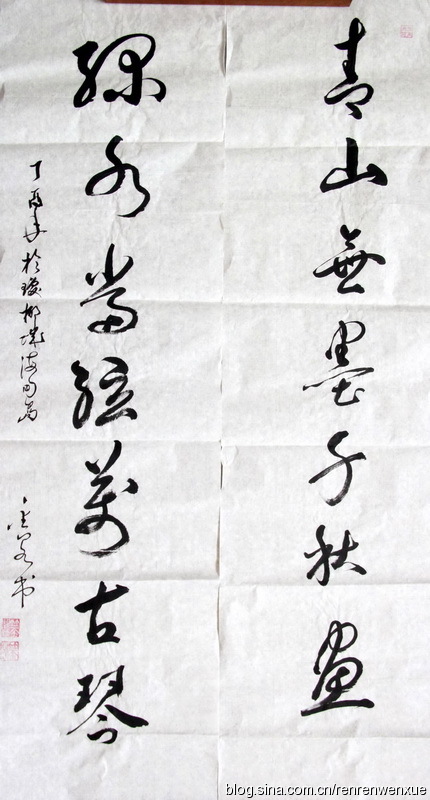 青山無墨千秋畫
綠水當絃萬古琴
丁酉年於瓊椰城海甸島
書
blog.sina.com.cn/renrenwenxue